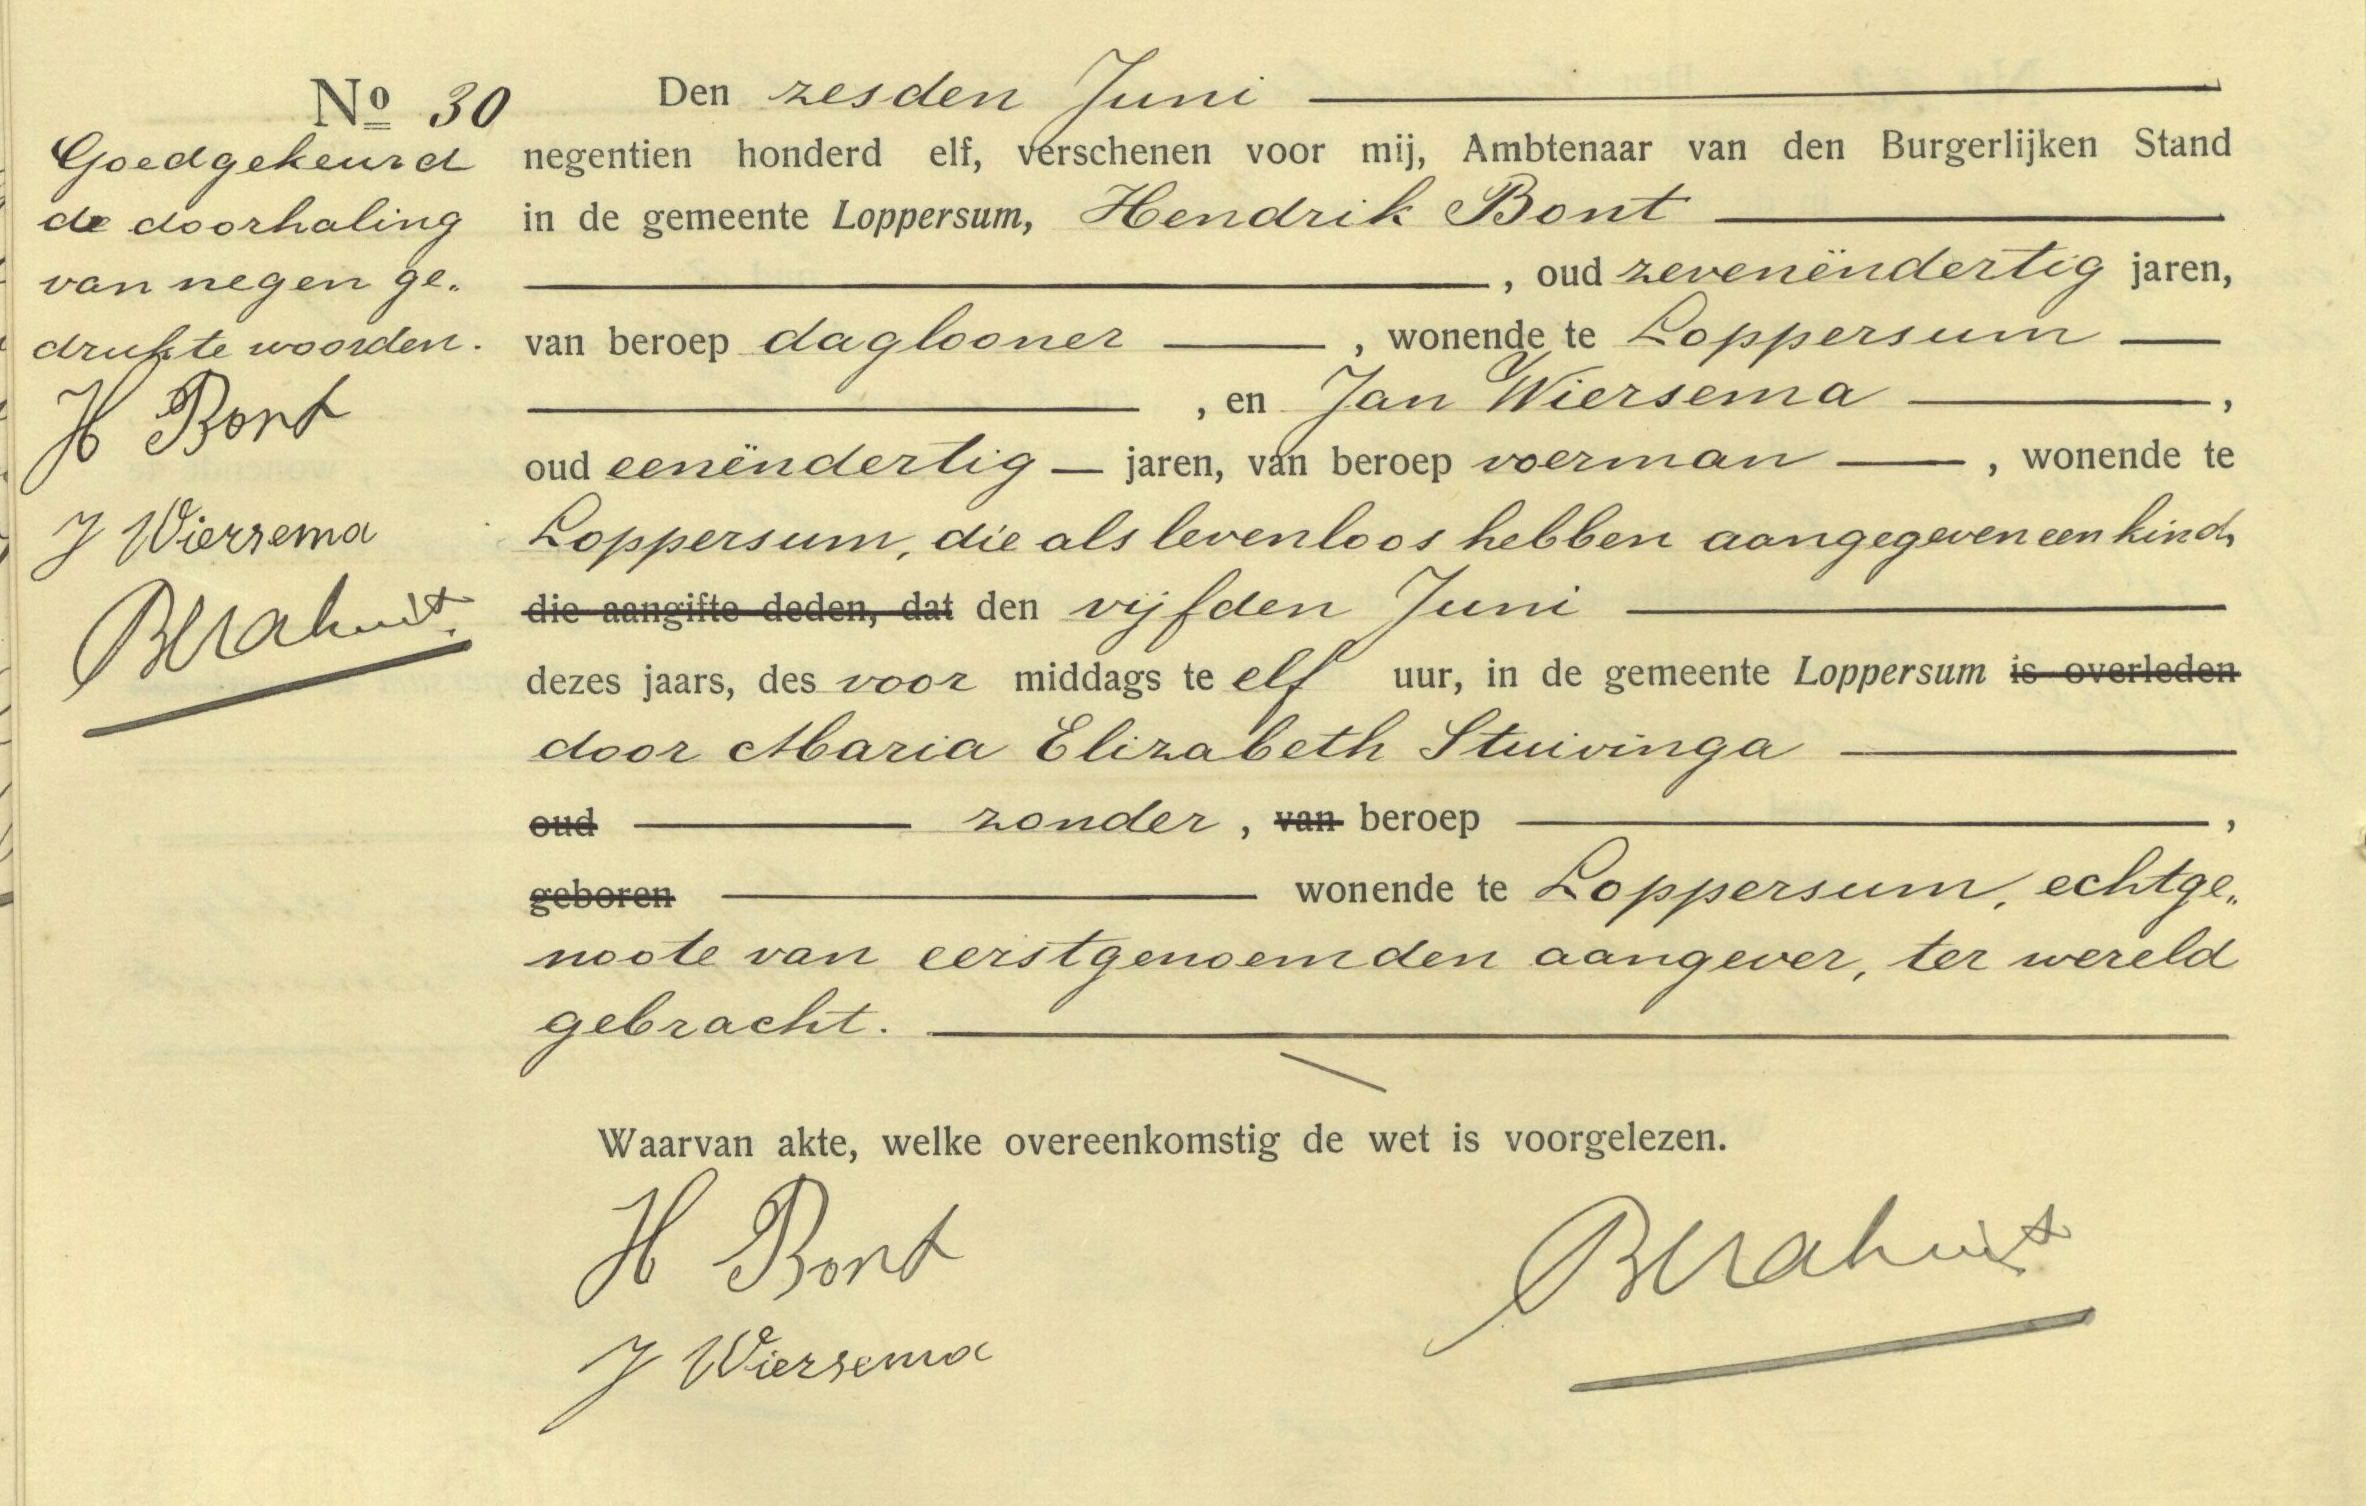 Nº 30
Goedgekeurd
de doorhaling
van negen ge„
drukte woorden.
H Bont
J Wiersema
Den zesden Juni
negentien honderd elf, verschenen voor mij, Ambtenaar van den Burgerlijken Stand
in de gemeente Loppersum, Hendrik Bont
, oud zevenëndertig jaren,
van beroep daglooner , wonende te Loppersum
, en Jan Wiersema ,
oud eenëndertig jaren, van beroep voerman , wonende te
Loppersum, die als levenloos hebben aangegeven een kind,
die aangifte deden, dat den vijfden Juni
dezes jaars, des voor middags te elf uur, in de gemeente Loppersum is overleden
door Maria Elizabeth Stuivinga
oud zonder, van beroep ,
geboren wonende te Loppersum, echtge„
noote van eerstgenoemden aangever, ter wereld
gebracht.
Waarvan akte, welke overeenkomstig de wet is voorgelezen.
H Bont
J Wiersema